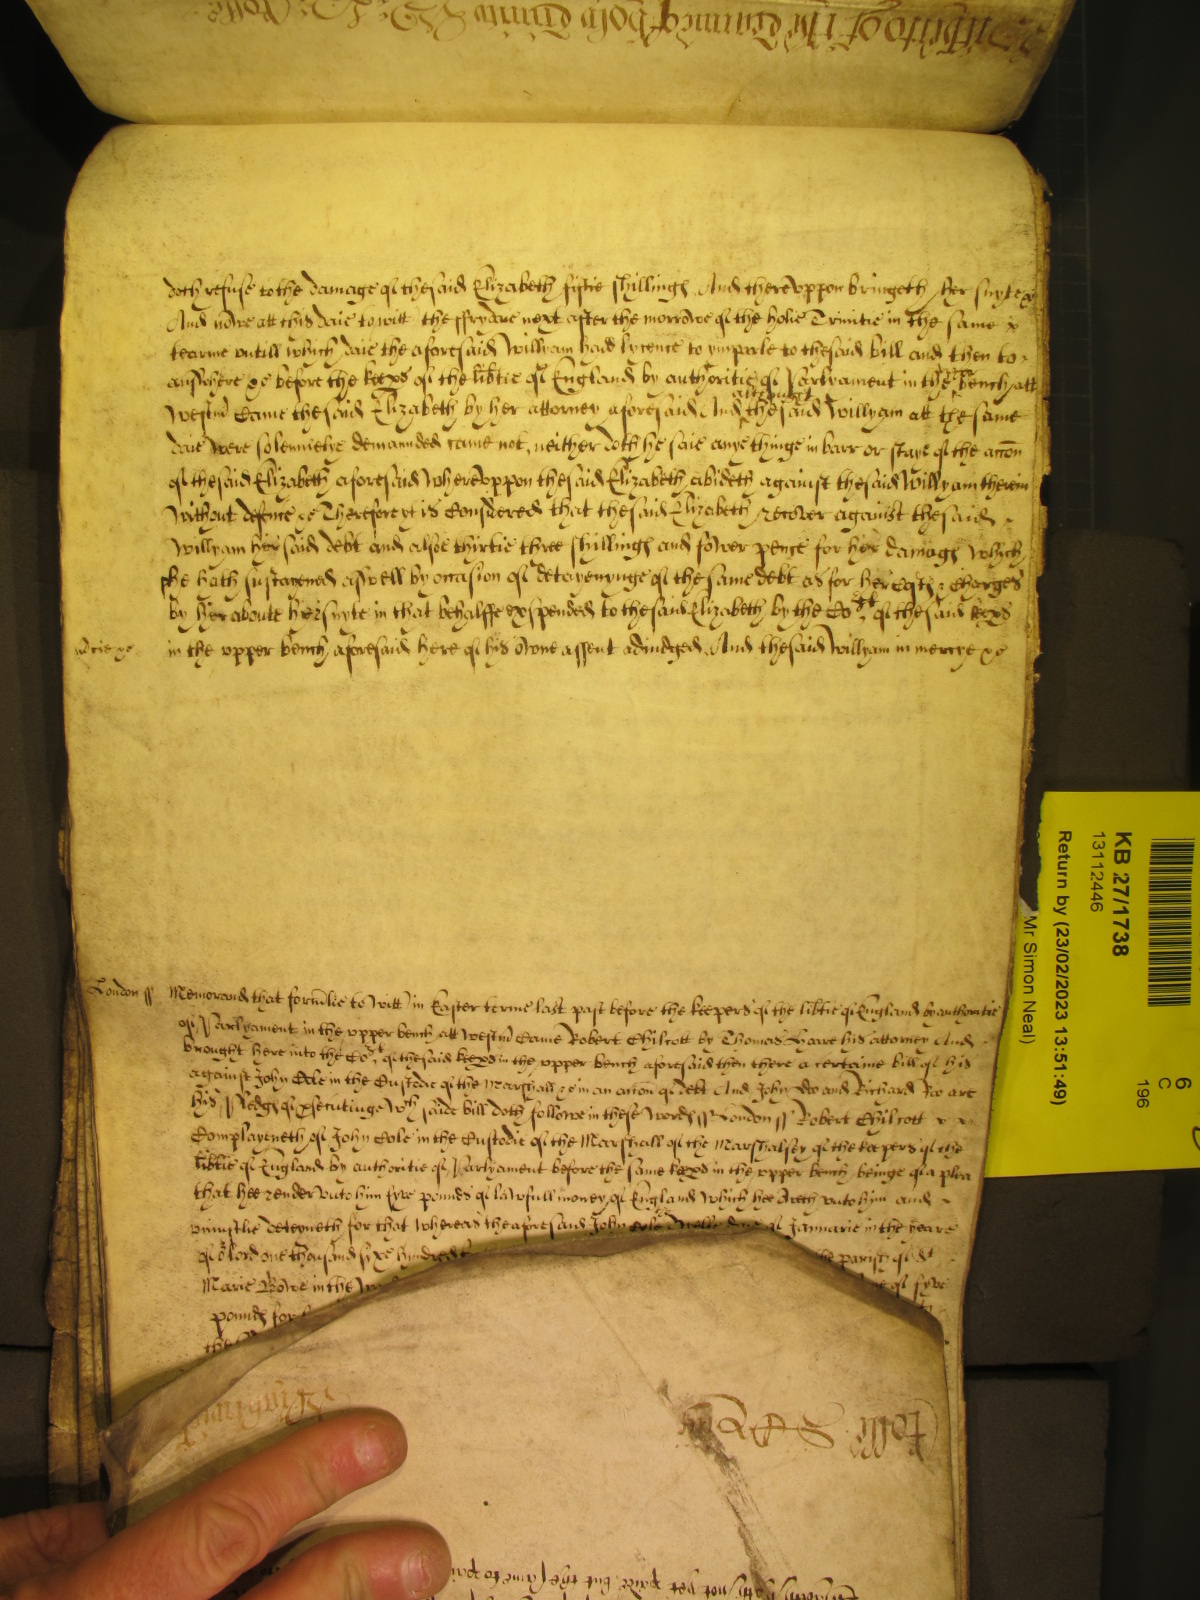 doth refuse to the damage of the said Elizabeth fiftie shillings And thereuppon bringeth her suyte &c
And nowe att this daie to witt the ffrydaie next after the morrowe of the holie Trinitie in the same
tearme untill which daie the aforesaid Willyam hadd lycence to ymparle to the said bill and then to
answhere &c before the keeps of the libtie of England by authoritie of Parlyament in the upper bench att
Westmr Came the said Elizabeth by her attorney aforesaid And the said Willyam att the same
daie were solemnelye demannded came not, neither doth he saie anye thinge in barr or staye of the accon
of the said Elizabeth aforesaid Whereuppon the said Elizabeth abideth against the said Willyam therein
Without defence &c Therefore yt is Considered that the said Elizabeth recover against the said
Willyam her said debt and alsoe thirtie three shillings and fower pence for her damags which
she hath sustayened aswell by occasion of detayenynge of the same debt as for her Costs & Charges
by her aboute her suyte in that behalffe expended to the said Elizabeth by the Cort of the said keeps
in the upper bench aforesaid here of his owne assent adiudged And the said Willyam in mercye &c
London ss Memorand that formlie to witt in Easter terme last past before the keepers of the libtie of England by authoritie
of Parlyament in the upper bench att Westmr Came Robert Chilcott by Thomas his attorney And
brought here into the Cort of the said keeps in the upper bench aforesaid then there a certaine bill of his
against John Cole in the Custodie of the Marshall &c in an accon of debt And John Doo and Richard Roo are
his Pledgs of psecutinge wch saide bill doth followe in these words ss London ss Robert Chilcott
Complayneth of John Cole in the Custodie of the Marshall of the Marshalsey of the keepers of the
libtie of England by authoritie of Parlyament before the same keeps in the upper bench beinge of a plea
that hee render unto him fyve pounds of lawfull money of England which hee oweth unto him and
uniustlie deteyneth for that whereas the aforesaid John Cole of Januarie in the yeare
of or lord one thousand sixe hundred the parish of St
Marie Bowe in the of fyve
pounds for
KB 27/1738
13112446
Return by (23/02/2023 13:51:49)
Mr Simon Neal)
6
C
196